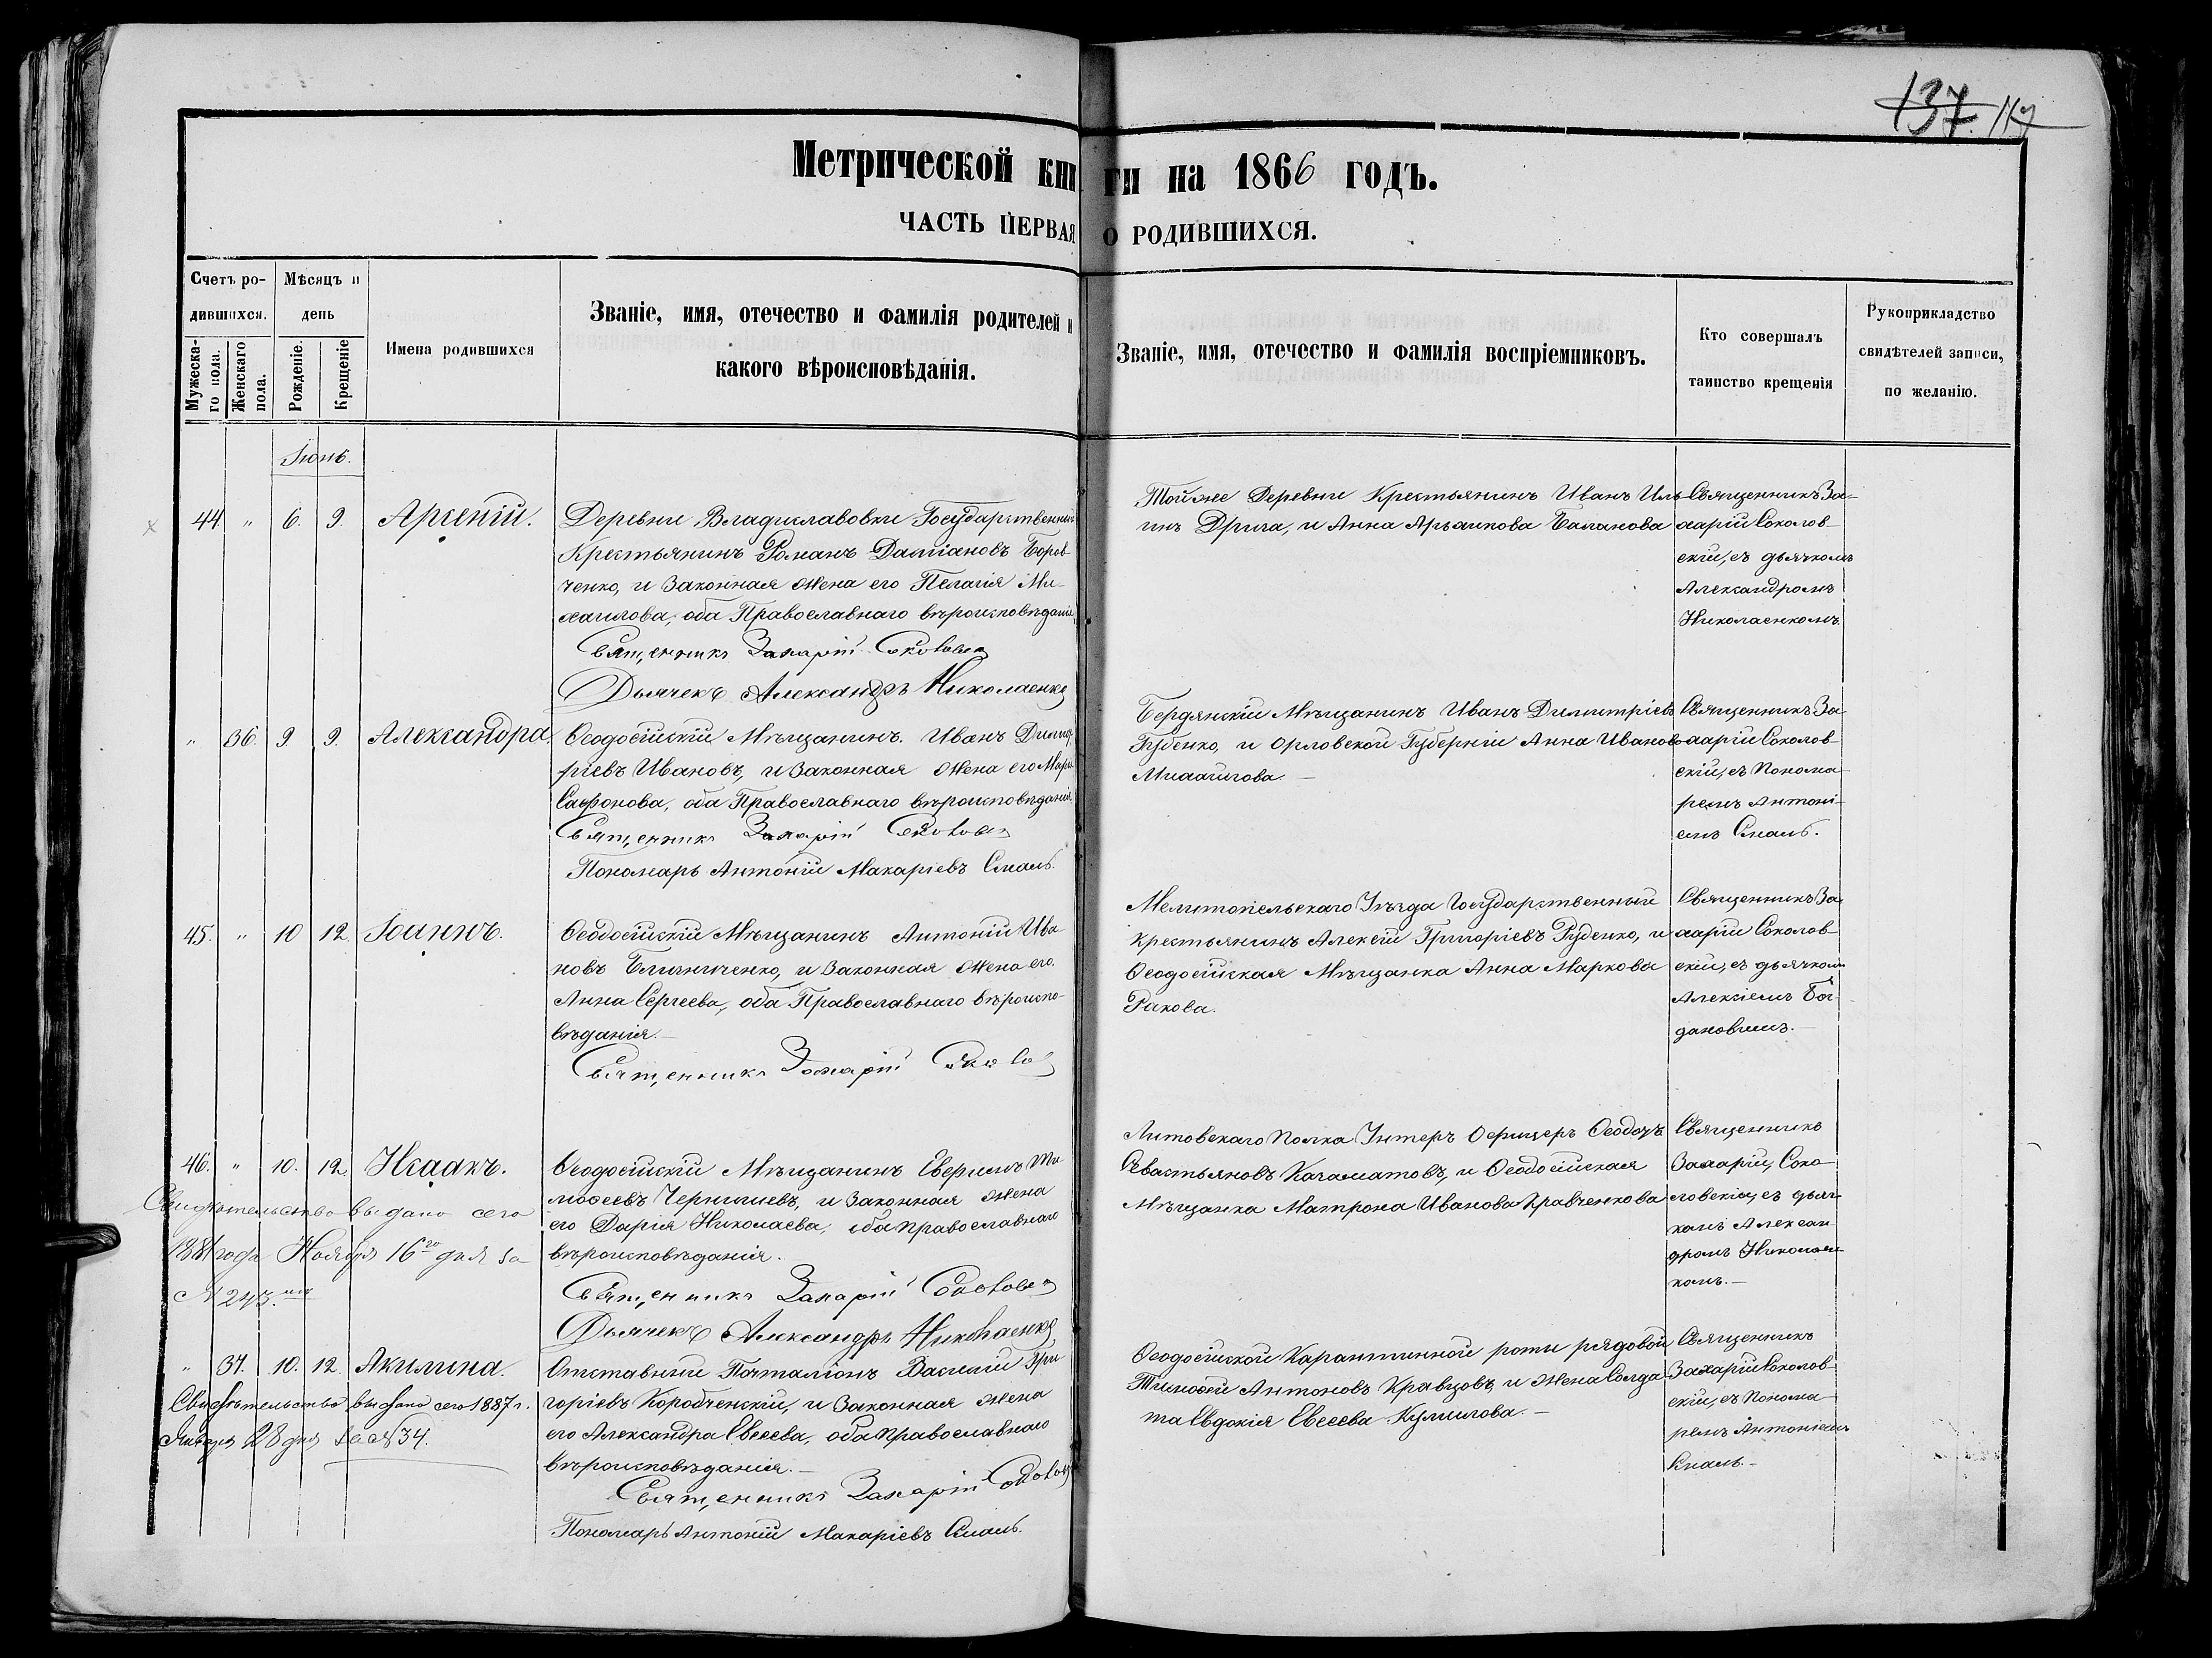 137. 119
Метрической книги на 1866 годъ.
ЧАСТЬ ПЕРВАЯ О РОДИВШИХСЯ.
Счетъ ро-
дившихся.
Мужеска-
го пола.
Женскаго
пола.
Мѣсяцъ и
день
Рожденіе.
Крещеніе
Имена родившихся
Званіе, имя, отечество и фамилія родителей и
какого вѣроисповѣданія.
Званіе, имя, отечество и фамилія воспріемниковъ.
Кто совершалъ
таинство крещенія
Рукоприкладство
свидѣтелей записи,
по желанію.
Іюнь.
44. " 6. 9. Арсеній.
Деревни Владиславовки Государственный
Крестьянинъ Романъ Даміановъ
ченко, и Законная Жена его Пелагія Ми-
хаилова, оба Православнаго вѣроисповѣданія
Священникъ Захарій
Дьячекъ Александръ Николаенко
Той же Деревни Крестьянинъ Иванъ Иль-
инъ Дрига, и Анна Баланова
Священникъ За-
харій Соколов-
скій, съ дьячкомъ
Александромъ
Николаенкомъ.
" 36. 9. 9. Александра.
Ѳеодосійскій Мѣщанинъ. Иванъ Димит-
ріевъ Ивановъ, и Законная Жена его
Сафонова, оба Православнаго вѣроисповѣданія
Священникъ Захарій
Пономарь Антоній Макаріевъ
Бердянскій Мѣщанинъ Иванъ Димитріевъ
Губенко, и Орловской Губерніи Анна Иванова
Михайлова.
Священникъ За-
харій Соколов-
скій, съ Понома-
ремъ Антоні-
емъ
45. " 10 12. Іоаннъ.
Ѳеодосійскій Мѣщанинъ Антоній Ива-
новъ Близниченко, и Законная Жена его
Анна Сергеева, оба Православнаго вѣроиспо-
вѣданія.
Священникъ Захарій
Мелитопельскаго Уѣзда Государственный
крестьянинъ Алексій Григоріевъ Руденко, и
Ѳеодосійская Мѣщанка Анна Маркова
Ракова.
Священникъ За-
харій Соколов-
скій, съ дьячкомъ
Алексіемъ Бог-
дановымъ.
46. " 10. 12. Исаакъ.
Свидѣтельство выдано сего
1881 года Ноября 16го дня за
№ 243.
Ѳеодосійскій Мѣщанинъ Ти-
моѳеевъ Чернышевъ, и Законная Жена
его Дарія Николаева, оба православнаго
вѣроисповѣданія.
Священникъ Захарій
Дьячекъ Александръ Николаенко
Литовскаго Полка Унтеръ Офицеръ
Севастьяновъ и Ѳеодосійская
Мѣщанка Матрона Иванова Кравченкова
Священникъ
Захарій Соко-
ловскій, съ дьяч-
комъ Алексан-
дромъ Николаен-
комъ.
" 37. 10. 12. Акилина.
Свидѣтельство выдано сего 1887 г.
Января 28 дня за № 34.
Отставный Почталіонъ Василій Гри-
горіевъ Коробченскій, и Законная Жена
его Александра Евсеева, оба Православнаго
вѣроисповѣданія.
Священникъ Захарій
Пономарь Антоній Макаріевъ
Ѳеодосійской Карантинной роты рядовой
Тимоѳей Антоновъ Кравцовъ, и Жена Солда-
та Евдокія Евсеева
Священникъ
Захарій Соколов-
скій, съ Понома-
ремъ Антоніемъ